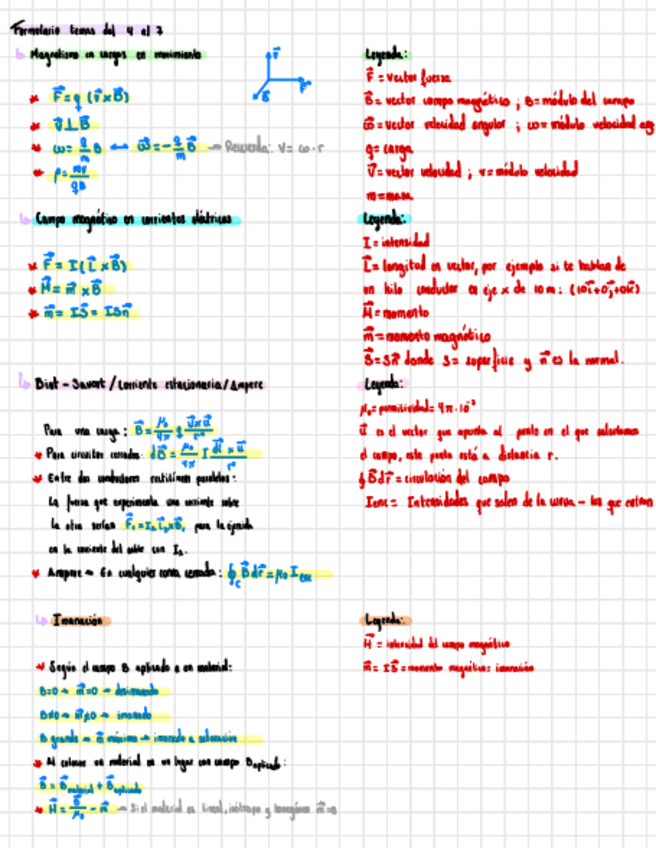 Formulario temas del 4 al 7
Magnetismo en cargas en movimiento
F⃗ = q (v⃗ × B⃗)
v⃗ ⊥ B⃗
ω = q/m B ↔ ω⃗ = - q/m B⃗ → Recuerda: v = ω · r
ρ = mv/qB
Leyenda:
F⃗ = vector fuerza
B⃗ = vector campo magnético ; B = módulo del campo
ω⃗ = vector velocidad angular ; ω = módulo velocidad ang
q = carga
v⃗ = vector velocidad ; v = módulo velocidad
m = masa
Campo magnético en corrientes eléctricas
F⃗ = I (L⃗ × B⃗)
M⃗ = m⃗ × B⃗
m⃗ = IS⃗ = ISn⃗
Leyenda:
I = intensidad
L⃗ = longitud en vector, por ejemplo si te hablan de
un hilo conductor en eje x de 10 m: (10i⃗+0j⃗+0k⃗)
M⃗ = momento
m⃗ = momento magnético
S⃗ = Sn⃗ donde S = superficie y n⃗ es la normal.
Biot - Savart / Corriente estacionaria / Ampere
Para una carga: B⃗ = μ₀/4π q v⃗×u⃗/r²
Para circuitos cerrados: dB⃗ = μ₀/4π I dl⃗ × u⃗/r²
Entre dos conductores rectilíneos paralelos:
La fuerza que experimenta una corriente sobre
la otra serían para la ejercida
en la corriente del cable con I₂.
Ampere → En cualquier curva cerrada: ∮c B⃗ dr⃗ = μ₀ I enc
Leyenda:
μ₀ = 4π·10⁻⁷
u⃗ es el vector que apunta al punto en el que calculamos
el campo, este punto está a distancia r.
∮ B⃗ dr⃗ = circulación del campo
Ienc = Intensidades que salen de la curva - las que entran
Imanación
Según el campo B aplicado a un material:
B=0 → m⃗=0 → desimanado
B≠0 → m⃗≠0 → imanado
B grande → m⃗ máxima → imanado a saturación
Al colocar un material en un lugar con campo B aplicado:
B⃗ = B⃗ material + B⃗ aplicado
H⃗ = B⃗/μ₀ - m⃗ → Si el material es lineal, isótropo y homogéneo m⃗=0
Leyenda:
H⃗ = intensidad del campo magnético
m⃗ = IS⃗ = momento magnético = imanación